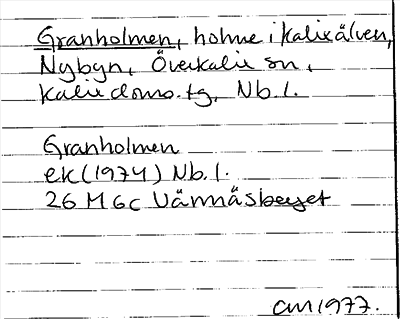 Granholmen, holme i Kalixälven,
Nybyn, Överkalix sn,
Kalix doms. tg, Nb. l.
Granholmen
ek (1974) Nb. l.
26 M 6c Vännäsberget
CM 1977.